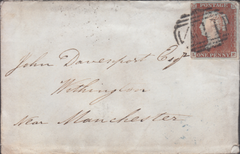 POSTAGE
John Davenport Esq
Withington
Near Manchester
ONE PENNY